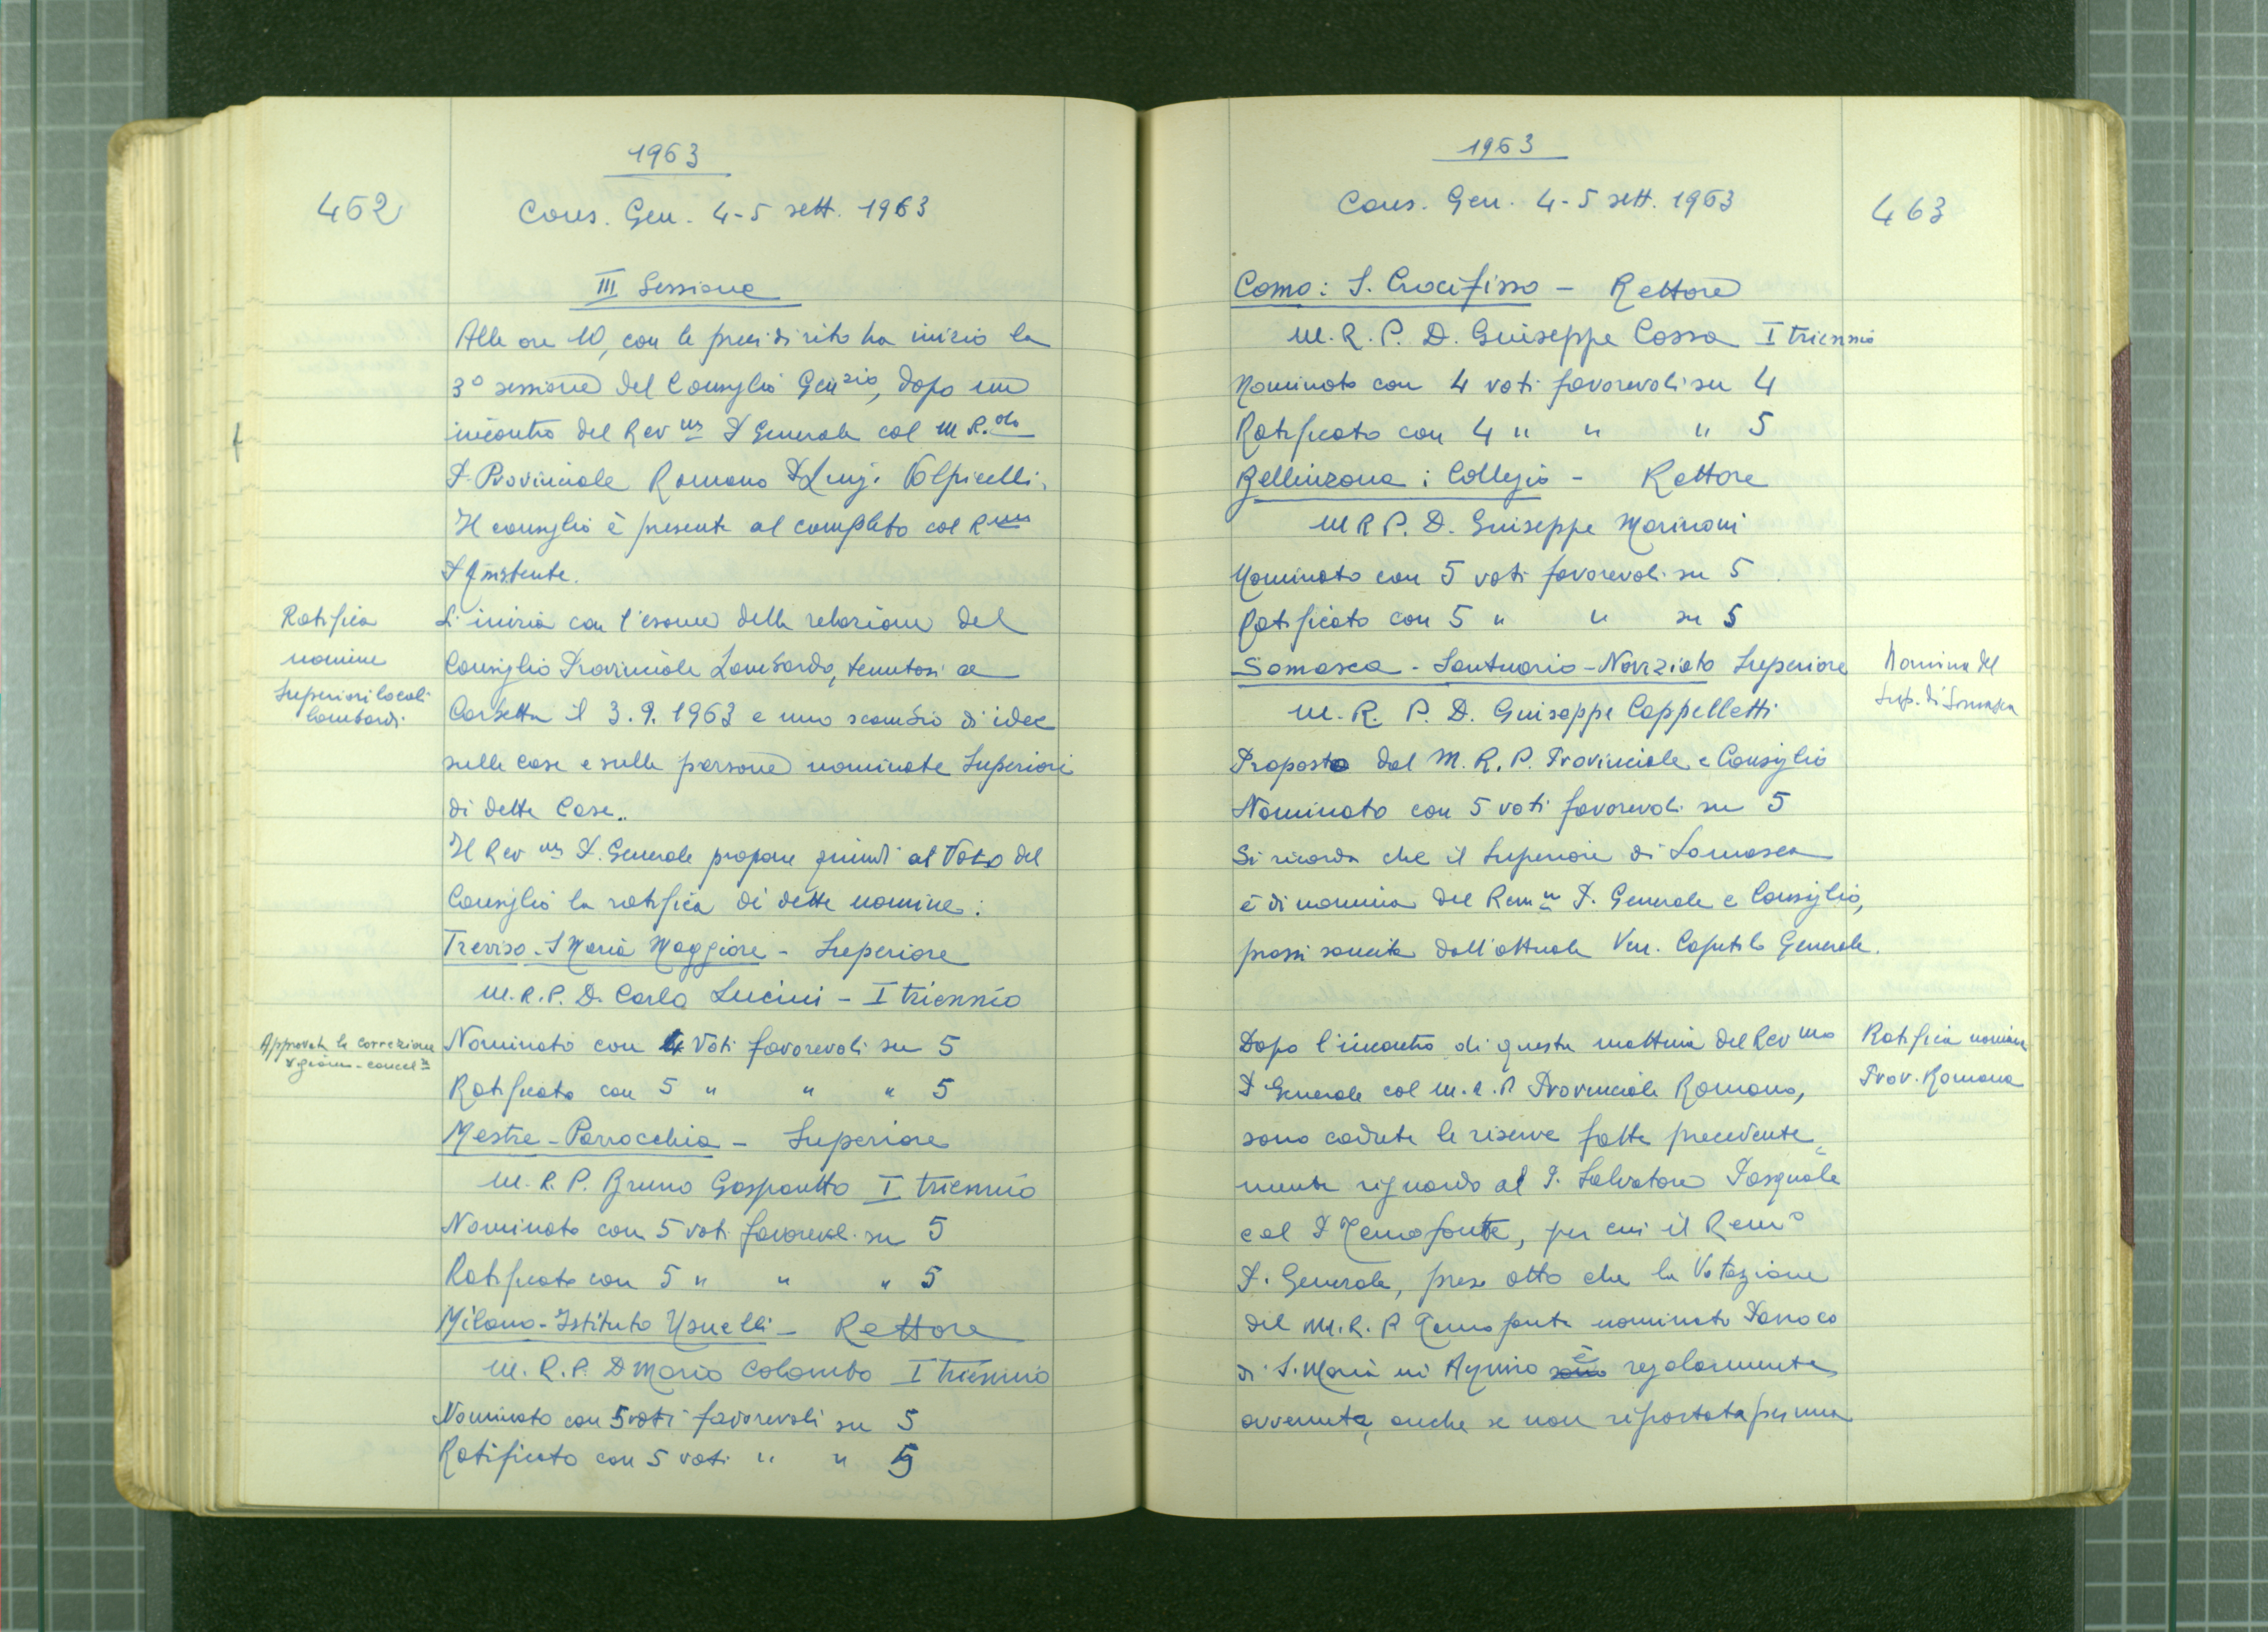 1963
462
Cons. Gen. 4-5 sett. 1963
III Sessione
Alle ore 10, con le preci di rito ha inizio la
3º sessione del Consiglio Genzio, dopo un
incontro del Revmo P. Generale col M. R.do
P. Provinciale Romano P. Luigi Volpicelli.
Il consiglio è presente al completo col Rmo
P. Assistente.
Ratifica
nomine
Superiori locali
lombardi.
Si inizia con l'esame della relazione del
Consiglio Provinciale Lombardo, tenutosi a
Corbetta il 3.9.1963 e uno scambio di idee
sulle case e sulle persone nominate Superiori
di dette Case.
Il Revmo P. Generale propone quindi al Voto del
Consiglio la ratifica di dette nomine:
Treviso - S Maria Maggiore - Superiore
M. R. P. D. Carlo Lucini - I triennio
Approvata la correzione
Nominato con 4 Voti favorevoli su 5
Ratificato con 5 " " " 5
Mestre - Parrocchia - Superiore
M. R. P. Bruno Gasparetto I triennio
Nominato con 5 voti favorevol. su 5
Ratificato con 5 " " " 5
Milano - Istituto Usuelli - Rettore
M. R. P. D Mario Colombo I triennio
Nominato con 5 voti favorevoli su 5
Ratificato con 5 voti " " 5
1963
Cons. Gen. 4-5 sett. 1963
463
Como: S. Crocifisso - Rettore
M. R. P. D. Giuseppe Cossa I triennio
Nominato con 4 voti favorevoli su 4
Ratificato con 4 " " " 5
Bellinzona: Collegio - Rettore
M R P. D. Giuseppe Marinoni
Nominato con 5 voti favorevoli su 5
Ratificato con 5 " " su 5
Somasca - Santuario - Noviziato Superiore
Nomina del
Sup. di Somasca
M. R. P. D. Giuseppe Cappelletti
Proposto dal M. R. P. Provinciale e Consiglio
Nominato con 5 voti favorevoli su 5
Si ricorda che il Superiore di Somasca
è di nomina del Revmo P. Generale e Consiglio,
prassi sancita dall'attuale Ven. Capitolo Generale.
Dopo l'incontro di questa mattina del Revmo
Ratifica nomine
Prov. Romana
P Generale col M. R. P Provinciale Romano,
sono cadute le riserve fatte precedente=
mente riguardo al P. Salvatore Pasquale
e al P Temofonte, per cui il Remo
P. Generale, preso atto che la Votazione
del M. R. P Temofonte nominato Parroco
di S. Maria in Aquiro sono è regolarmente
avvenuta, anche se non riportata per una